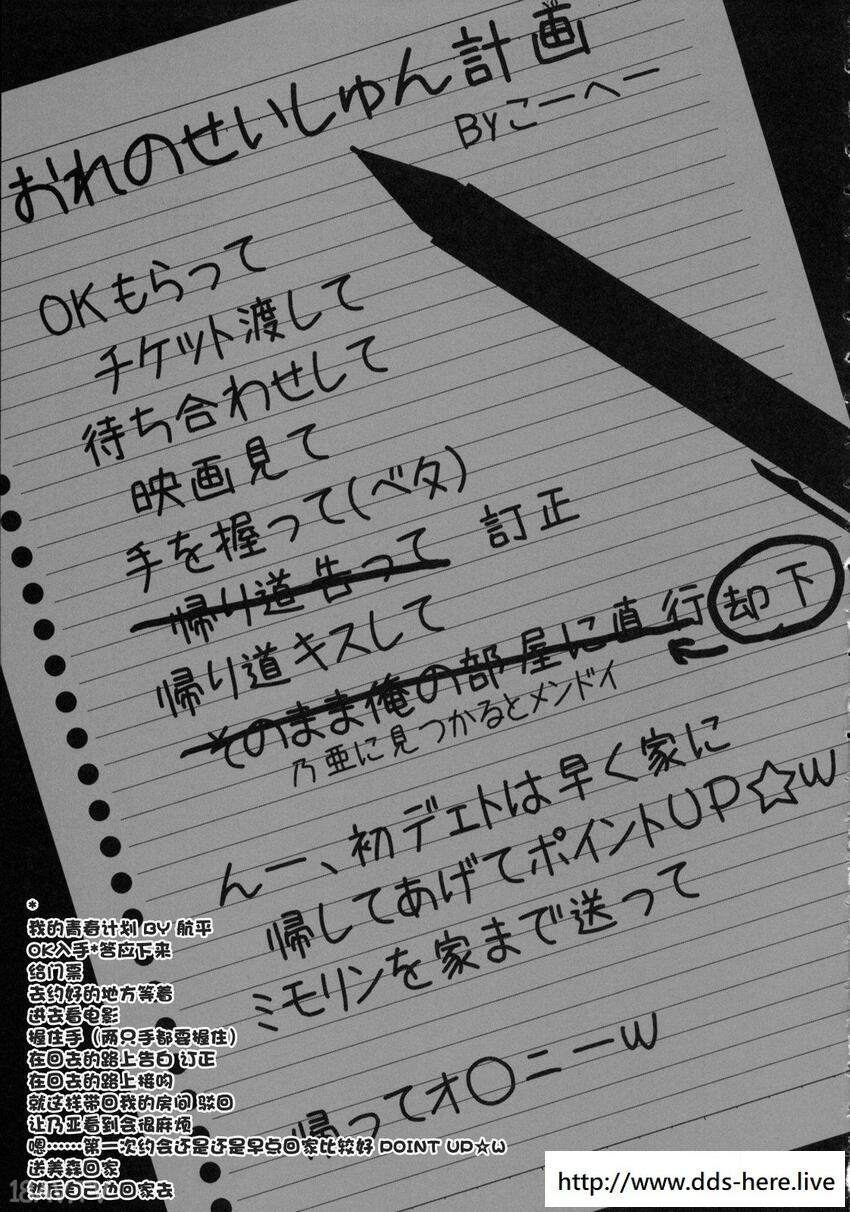 おれのせいしゅん計画
Byこーへー
OKもらって
チケット渡して
待ち合わせして
映画見て
手を握って(ベタ)
帰り道告って 訂正
帰り道キスして
そのまま俺の部屋に直行 却下
乃亜に見つかるとメンドイ
んー、初デェトは早く家に
帰してあげてポイントUP☆w
ミモリンを家まで送って
帰ってオ〇ニーw
*
我的青春计划 BY 航平
OK入手*答应下来
给门票
去约好的地方等着
进去看电影
握住手（两只手都要握住）
在回去的路上告白 订正
在回去的路上接吻
就这样带回我的房间 驳回
让乃亚看到会很麻烦
嗯……第一次约会还是还是早点回家比较好 POINT UP☆W
送美森回家
然后自己也回家去
http://www.dds-here.live